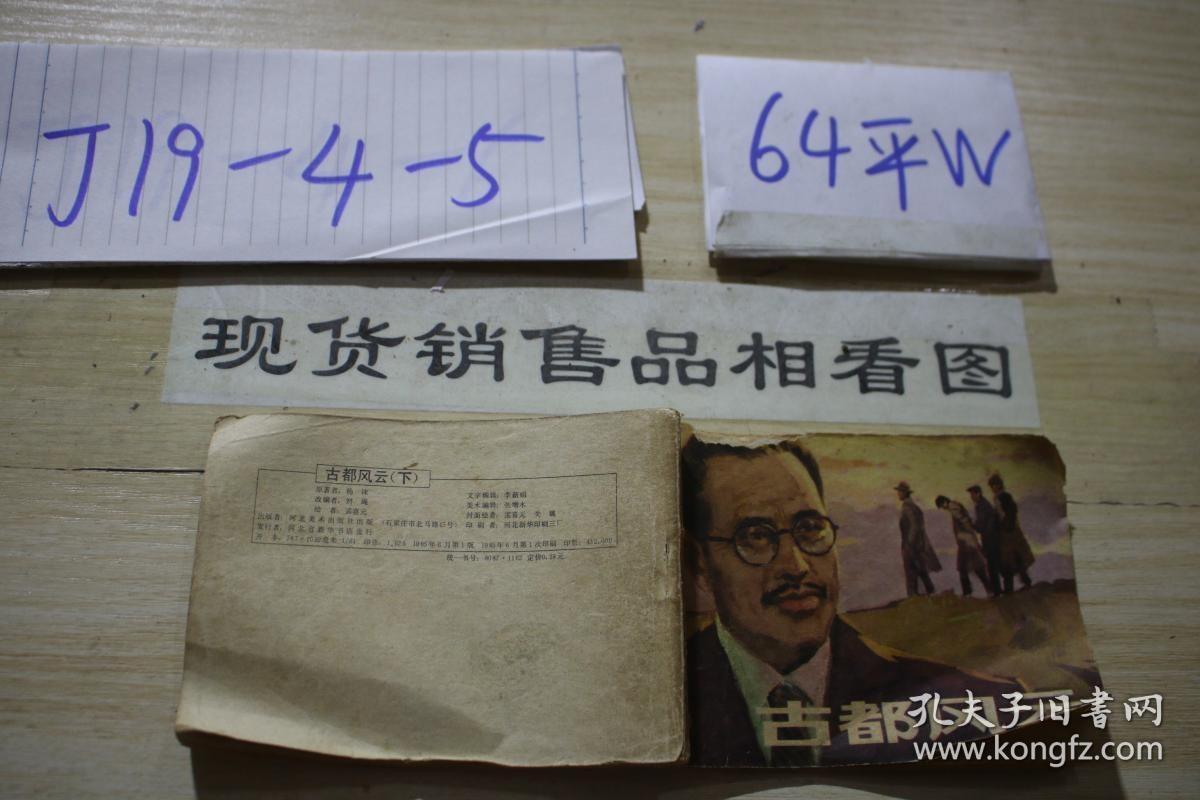 J19-4-5
64平W
现货销售品相看图
古都风云(下)
原著者：杨沫
改编者：刘
绘者：孟喜元
出版者：河北美术出版社出版（石家庄市北马路45号）
发行者：河北省新华书店发行
文字编辑：李新娟
美术编辑：张增木
封面绘者：孟喜元
印刷者：河北新华印刷三厂
开本：787×1092毫米1/64 印张：1.926 1985年6月第1版 1985年6月第1次印刷 印数：432,000
统一书号：8087·1162 定价0.28元
古都风云
孔夫子旧书网
www.kongfz.com